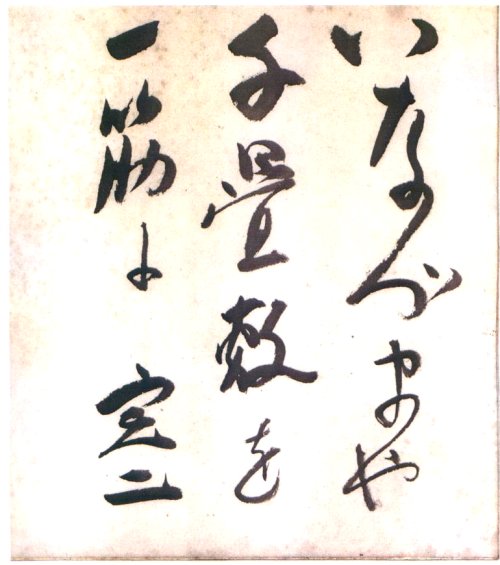 いなづまや
千畳敷を
一筋に